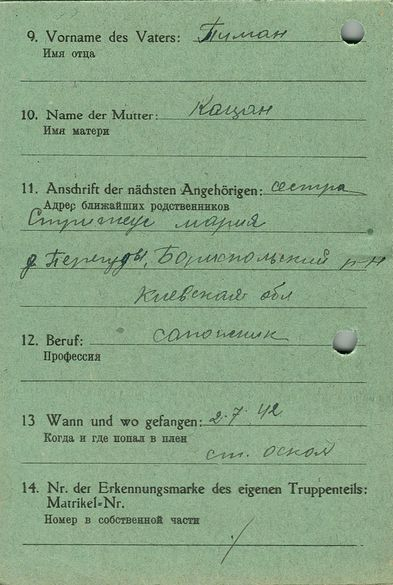 9. Vorname des Vaters: Пиман
Имя отца
10. Name der Mutter: Кацан
Имя матери
11. Anschrift der nächsten Angehörigen: сестра
Адрес ближайших родственников
мария
д Перегуды, Бориспольский р-н
Киевская обл
12. Beruf: сапожник
Профессия
13 Wann und wo gefangen: 2.7.42
Когда и где попал в плен
ст. оскол
14. Nr. der Erkennungsmarke des eigenen Truppenteils:
Matrikel-Nr.
Номер в собственной части
/